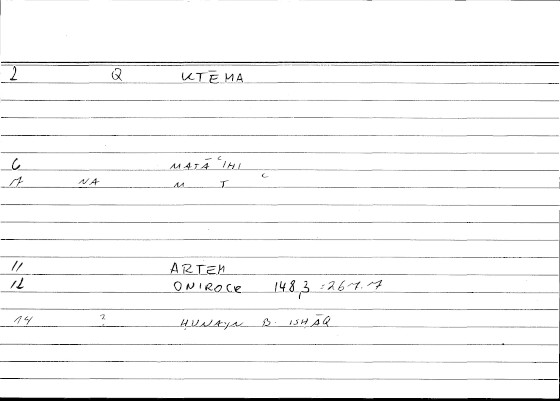 2 Q KTĒMA
6 MATĀʿIHI
7 NA M T ʿ
11 ARTEM
12 ONIROCR 148,3 = 267.7
14 ? ḤUNAYN B. ISḤĀQ